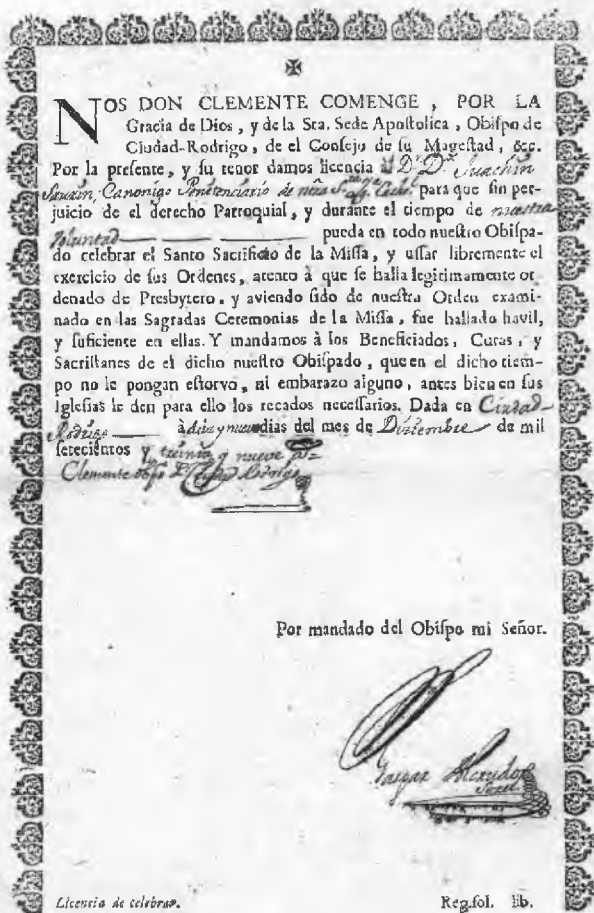 ✠
NOS DON CLEMENTE COMENGE, POR LA
Gracia de Dios, y de la Sta. Sede Apoſtolica, Obiſpo de
Ciudad-Rodrigo, de el Conſejo de ſu Mageſtad, &c.
Por la preſente, y ſu tenor damos licencia à Dr. Dn. Juachin
Canonigo Penitenciario de nrã para que ſin per-
juicio de el derecho Parroquial, y durante el tiempo de nuestra
Voluntad pueda en todo nueſtro Obiſpa-
do celebrar el Santo Sacrificio de la Miſſa, y uſſar libremente el
exercicio de ſus Ordenes, atento à que ſe halla legitimamente or
denado de Presbytero, y aviendo ſido de nueſtra Orden exami-
nado en las Sagradas Ceremonias de la Miſſa, fue hallado havil,
y ſuficiente en ellas. Y mandamos à los Beneficiados, Curas, y
Sacriſtanes de el dicho nueſtro Obiſpado, que en el dicho tiem-
po no le pongan eſtorvo, ni embarazo alguno, antes bien en ſus
Igleſias le den para ello los recados neceſſarios. Dada en Ciudad-
Rodrigo à diez y nueve dias del mes de Diziembre de mil
ſetecientos y treinta y nueve
Clemente obpo de Rodrigo
Por mandado del Obiſpo mi Señor.
Gaspar
Licencia de celebrar.
Reg.fol. lib.